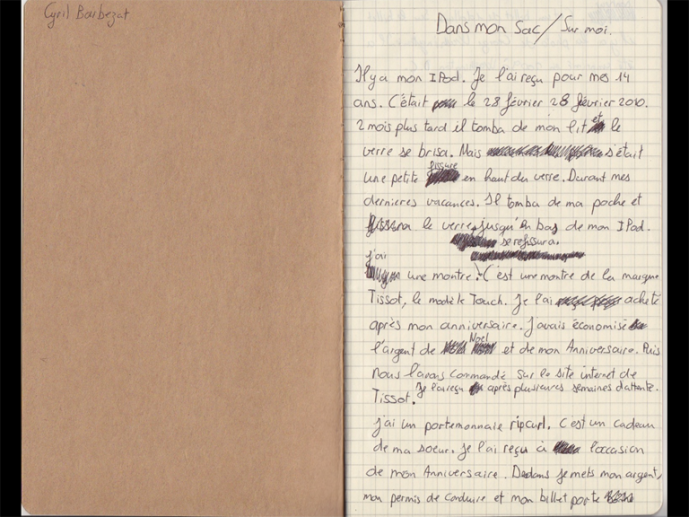 Cyril Barbezat
Dans mon Sac/ Sur moi.
Il y a mon IPod. Je l'ai reçu pour mes 14
ans. C'était le 28 février 28 février 2010.
2 mois plus tard il tomba de mon lit et le
verre se brisa. Mais s'était
une petite fissure en haut du verre. Durant mes
dernieres vacances. Il tomba de ma poche et
le verre jusqu'en bas de mon IPod.
se refissura.
j'ai une montre. C'est une montre de la marque
Tissot, le modèle Touch. Je l'ai acheté
après mon anniversaire. J'avais économisé
l'argent de Noel et de mon Anniversaire. Puis
nous l'avons commandé sur le site internet de
Tissot. Je l'ai reçu après plusieures semaines d'attente.
J'ai un portemonnaie ripcurl. C'est un cadeau
de ma soeur. Je l'ai reçu à l'occasion
de mon Anniversaire. Dedans je mets mon argent,
mon permis de conduire et mon billet porte